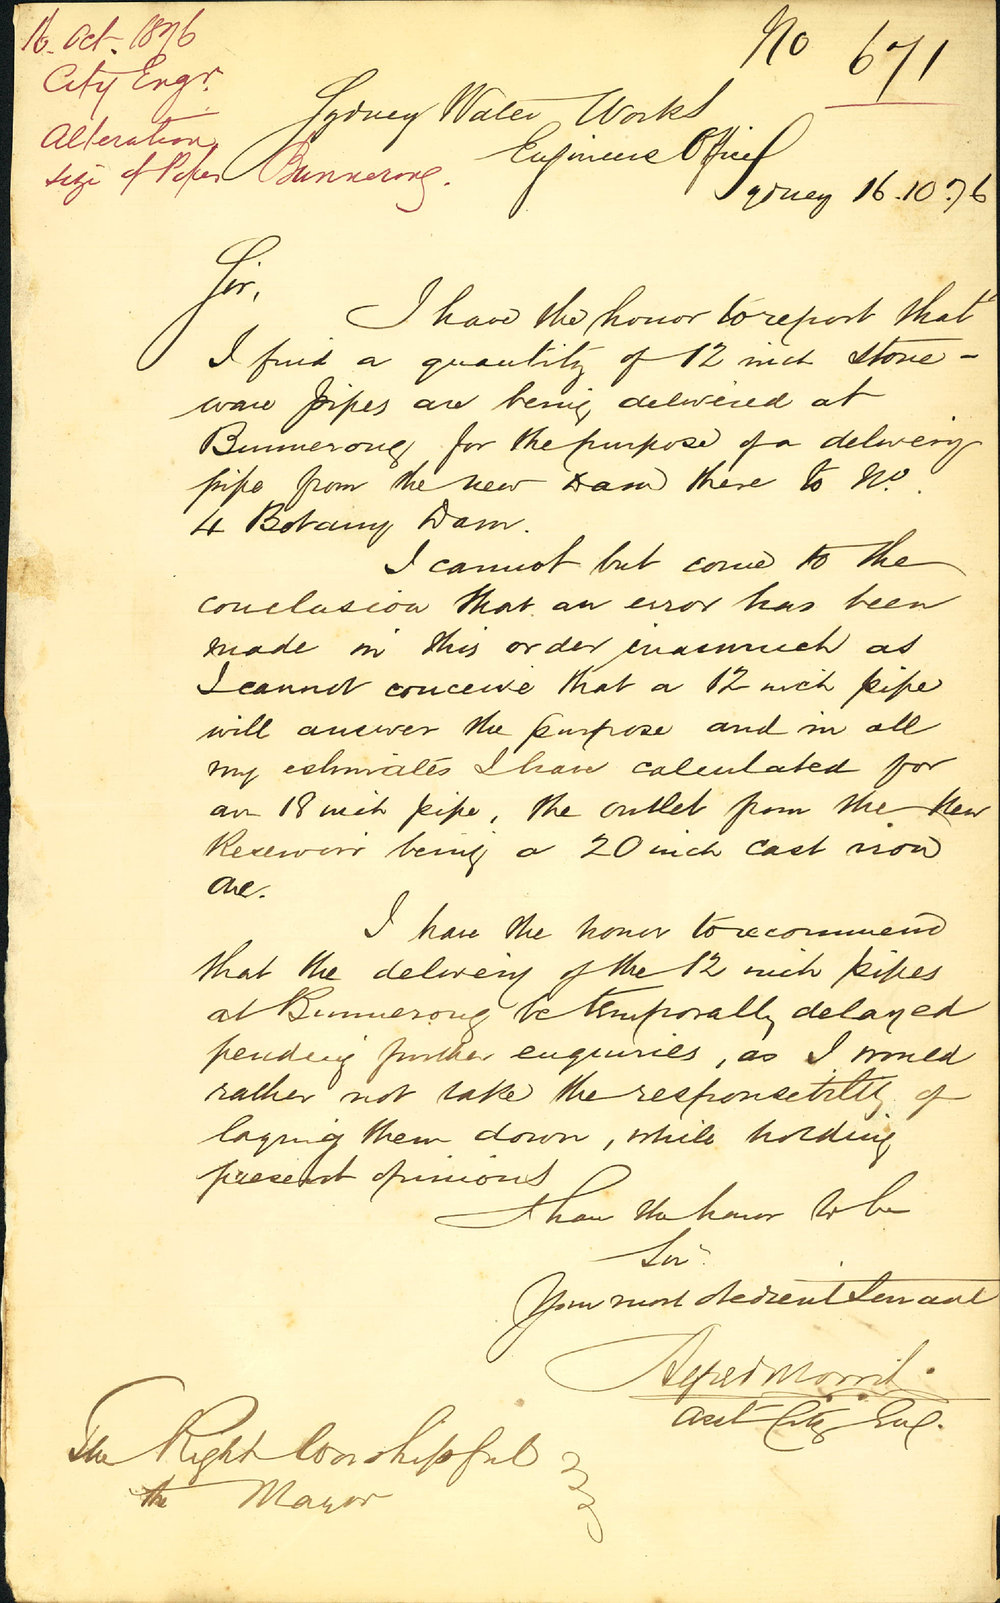 16. Oct. 1876
City Engr.
Alteration
size of Pipes Bunnerong.
No 671
Sydney Water Works
Engineers Office
Sydney 16.10.76
Sir,
I have the honor to report that
I find a quantity of 12 inch stone-
ware pipes are being delivered at
Bunnerong for the purpose of a delivery
pipe from the new Dam there to No.
4 Botany Dam.
I cannot but come to the
conclusion that an error has been
made in this order inasmuch as
I cannot conceive that a 12 inch pipe
will answer the purpose and in all
my estimates I have calculated for
an 18 inch pipe, the outlet from the New
Reservoir being a 20 inch cast iron
one.
I have the honor to recommend
that the delivery of the 12 inch pipes
at Bunnerong be temporally delayed
pending further enquiries, as I would
rather not take the responsibility of
laying them down, while holding
present opinions
I have the honor to be
Sir
Your most obedient Servant
Alfred
Asst City Eng.
The Right Worshipful
the Mayor